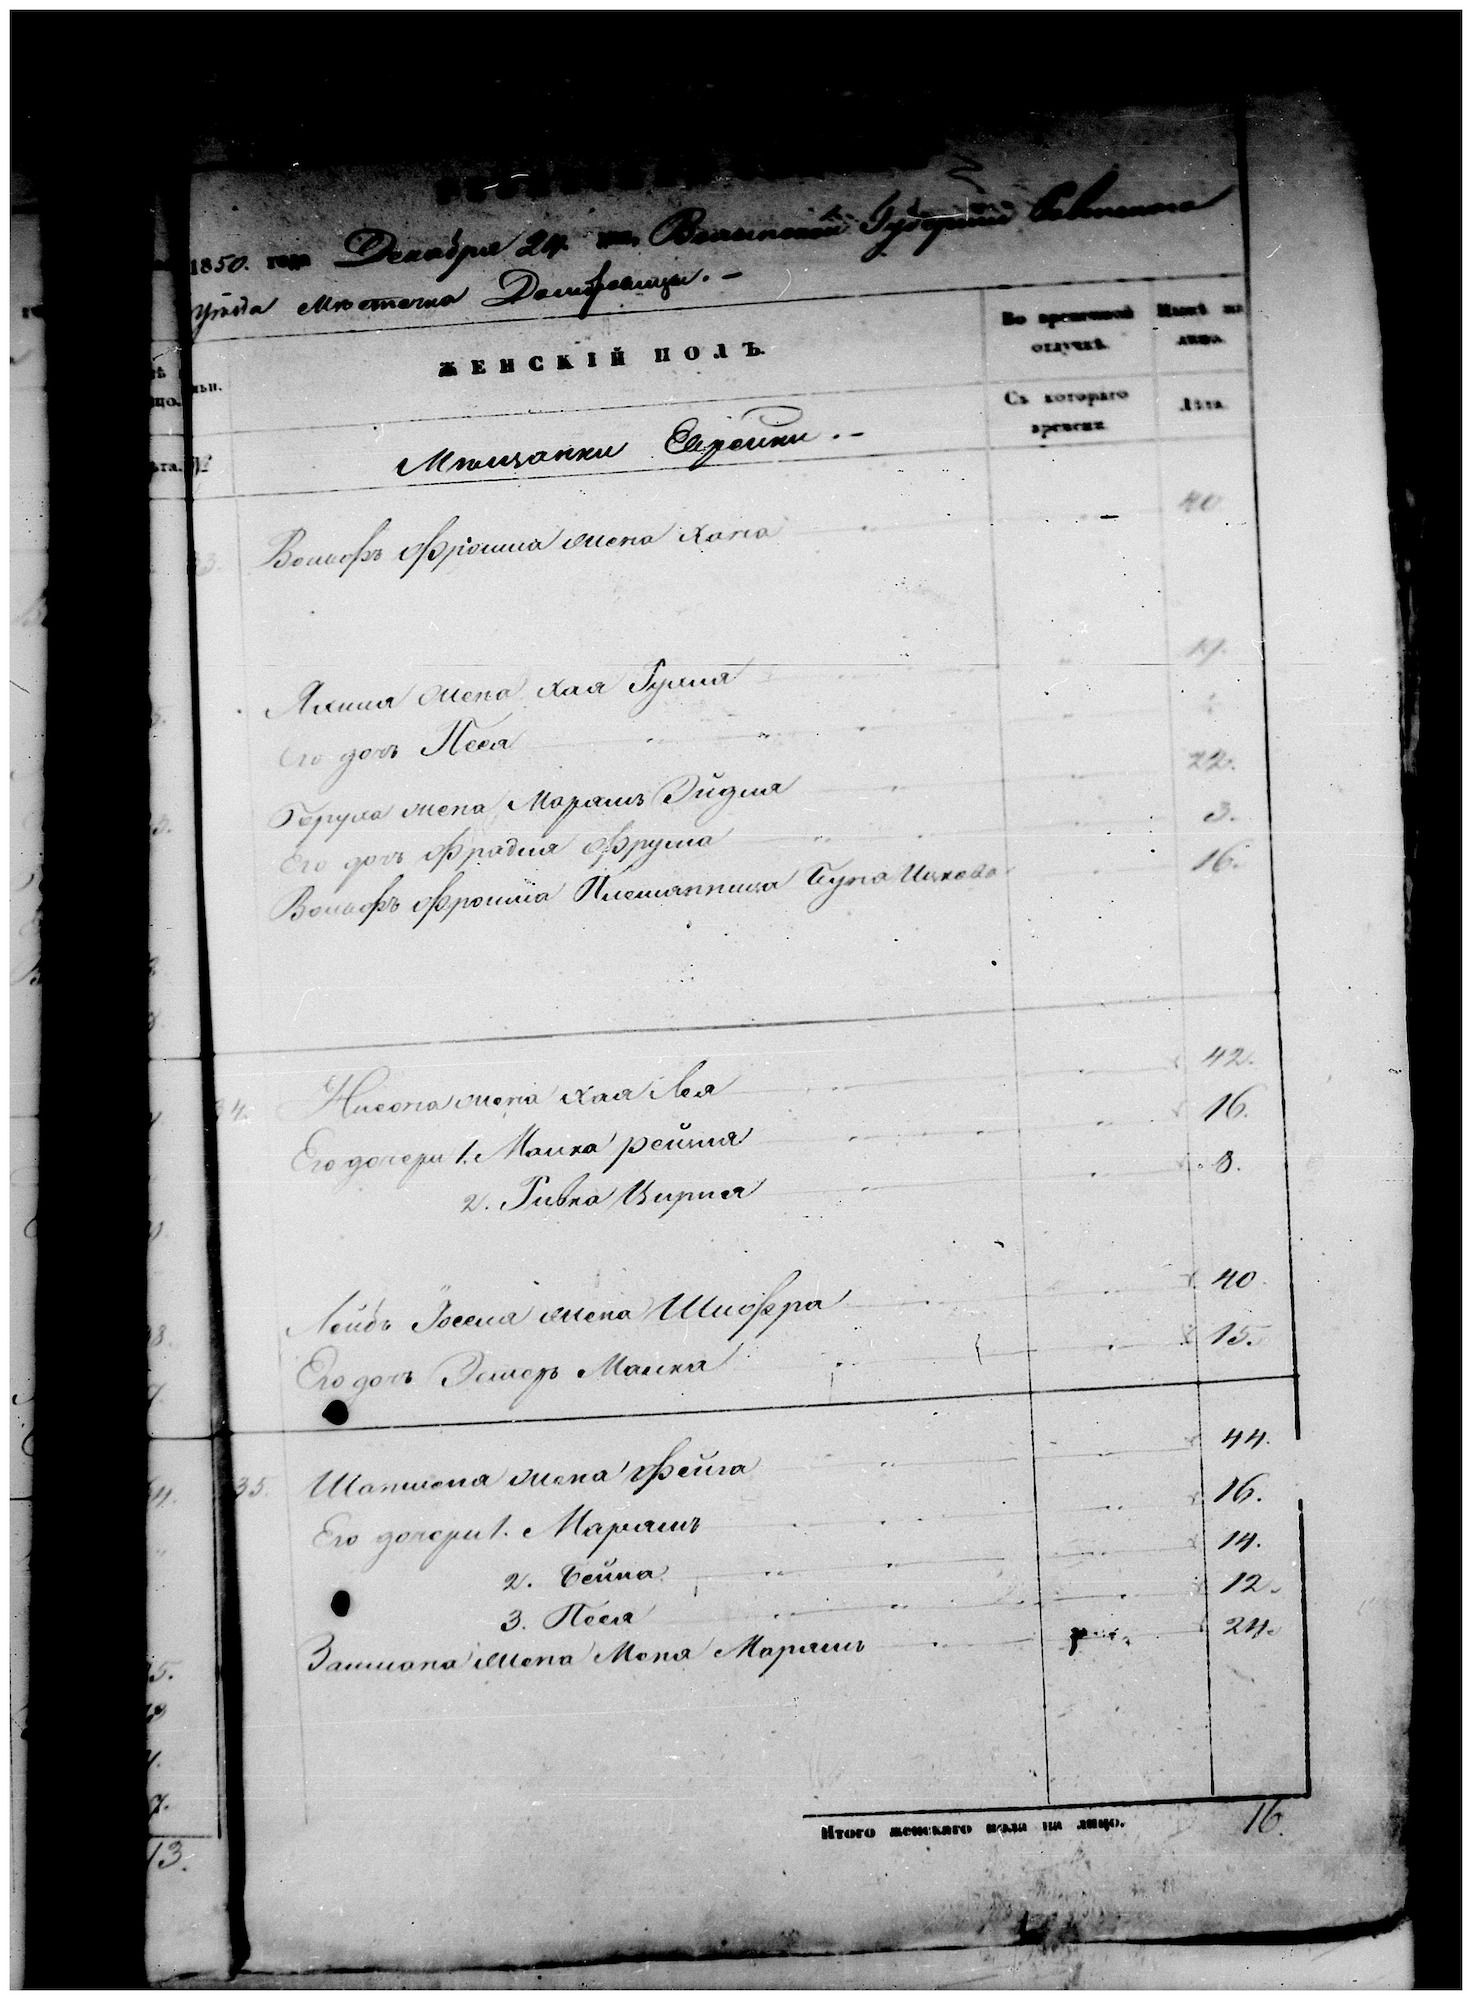 1850. года Декабря 24 дня Волынской Губернии Ровенского
Уезда Местечка Домбровицы. –
ЖЕНСКІЙ ПОЛЪ.
Во временной отлучкѣ.
Нынѣ на лицо.
Съ котораго времени
Лѣта.
Мѣщанки Еврейки. –
33. Вольфъ Фроима жена Хана 40
жена Хая
Его дочь Песя
Боруха жена Марьямъ Эйдля 22.
Его дочь Фрадля Фрума 3.
Вольфъ Фроима Племянница Буня Ицкова 16.
34. Нисона жена Хая Лея 42.
Его дочери 1. Малка Рейзля 16.
2. Ривка Цирля 8.
Лейбъ Іосея жена Шифра 40.
Его дочь Эстеръ Малка 15.
35. жена Фейга 44.
Его дочери 1. Марьямъ 16.
2. Бейла 14.
3. Песя 12.
Залмана жена Меня Марьямъ 24.
Итого женскаго пола на лицо. 16.
13.